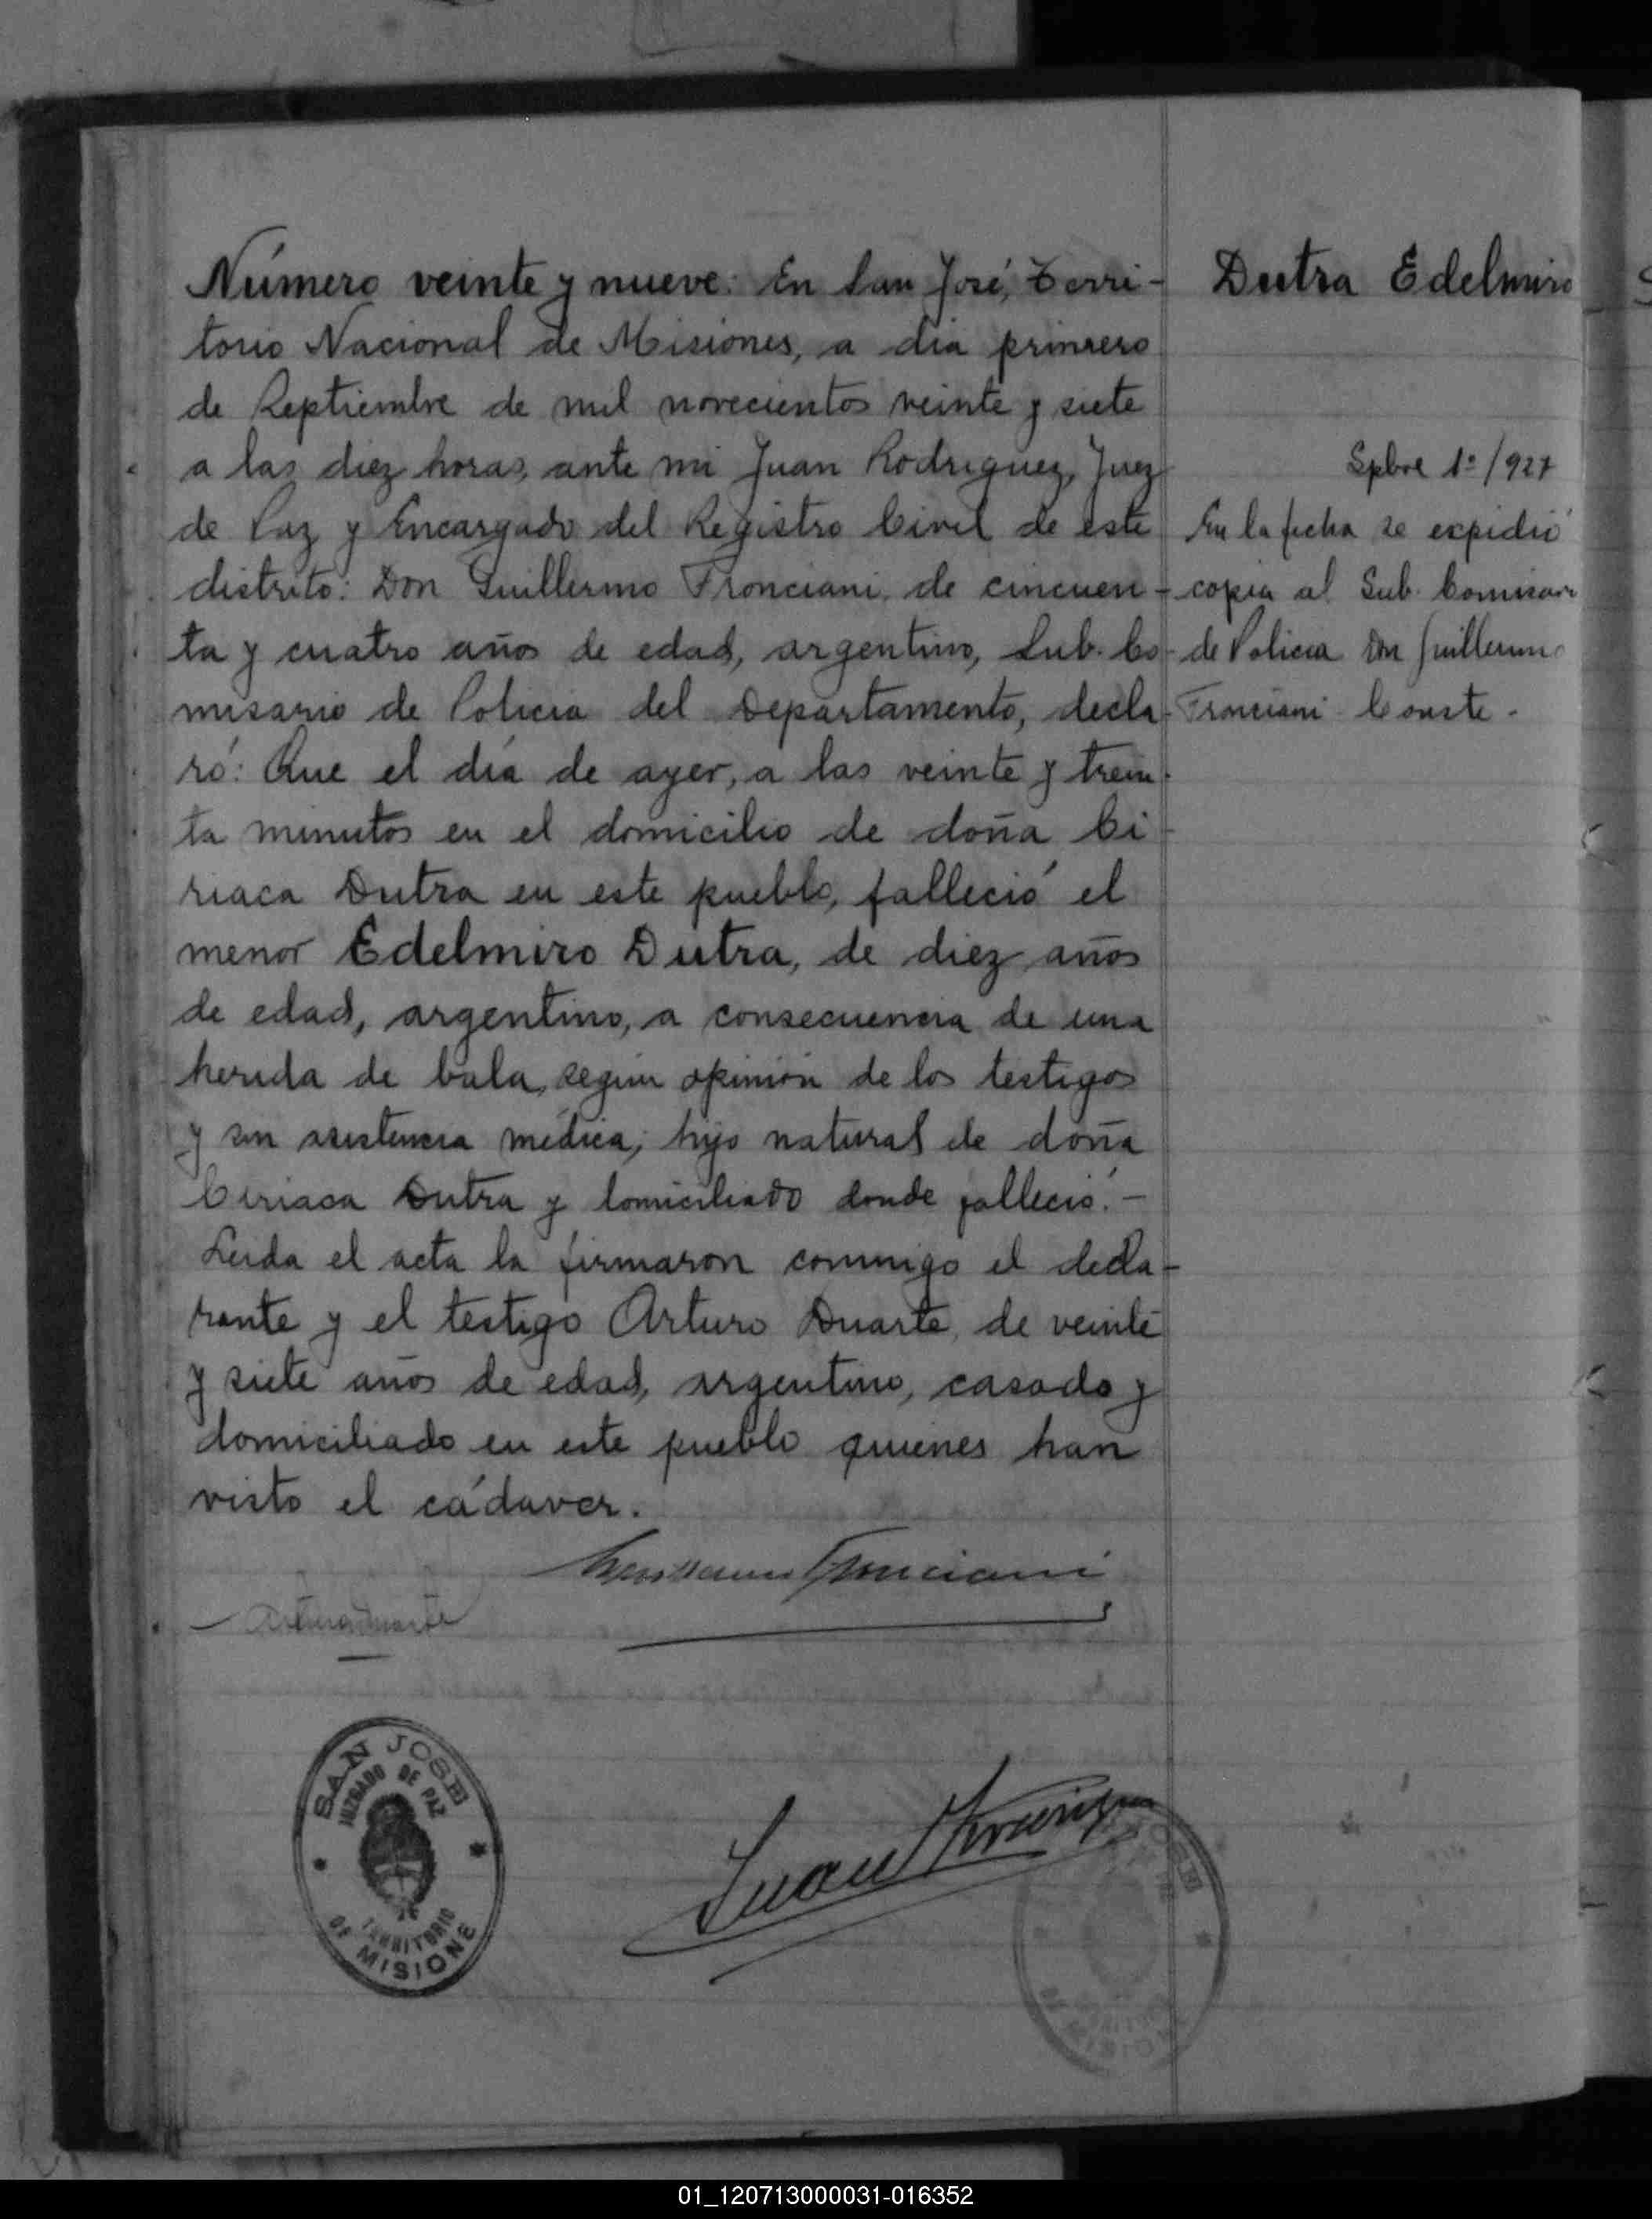 Número veinte y nueve: En San José, Terri-
torio Nacional de Misiones, a dia primero
de Septiembre de mil novecientos veinte y siete
a las diez horas, ante mi Juan Rodriguez, Juez
de Paz y Encargado del Registro Civil de este
distrito: Don Guillermo Fronciani, de cincuen-
ta y cuatro años de edad, argentino, Sub. Co-
misario de Policia del Departamento, decla-
ró: Que el día de ayer, a las veinte y trein-
ta minutos en el domicilio de doña Ci-
riaca Dutra en este pueblo, falleció el
menor Edelmiro Dutra, de diez años
de edad, argentino, a consecuencia de una
herida de bala, según opinión de los testigos
y sin asistencia médica; hijo natural de doña
Ciriaca Dutra y domiciliado donde falleció.-
Leida el acta la firmaron conmigo el decla-
rante y el testigo Arturo Duarte, de veinte
y siete años de edad, argentino, casado y
domiciliado en este pueblo quienes han
visto el cádaver.
Guillermo Fronciani
Arturo Duarte
Juan Rodriguez
Dutra Edelmiro
Spbre 1º/927
En la fecha se expidió
copia al Sub. Comisario
de Policia Don Guillermo
Fronciani Conste.
SAN JOSE
JUZGADO DE PAZ
TERRITORIO
DE MISIONE
01_120713000031-016352